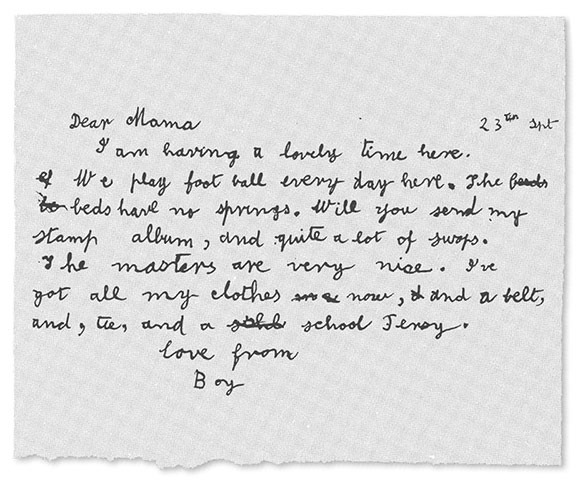 Dear Mama 23rth Spt
I am having a lovely time here.
We play foot ball every day here. The beds
beds have no springs. Will you send my
stamp album, and quite a lot of swops.
The masters are very nice. I've
got all my clothes now, and a belt,
and, tie, and a school Jersy.
love from
Boy